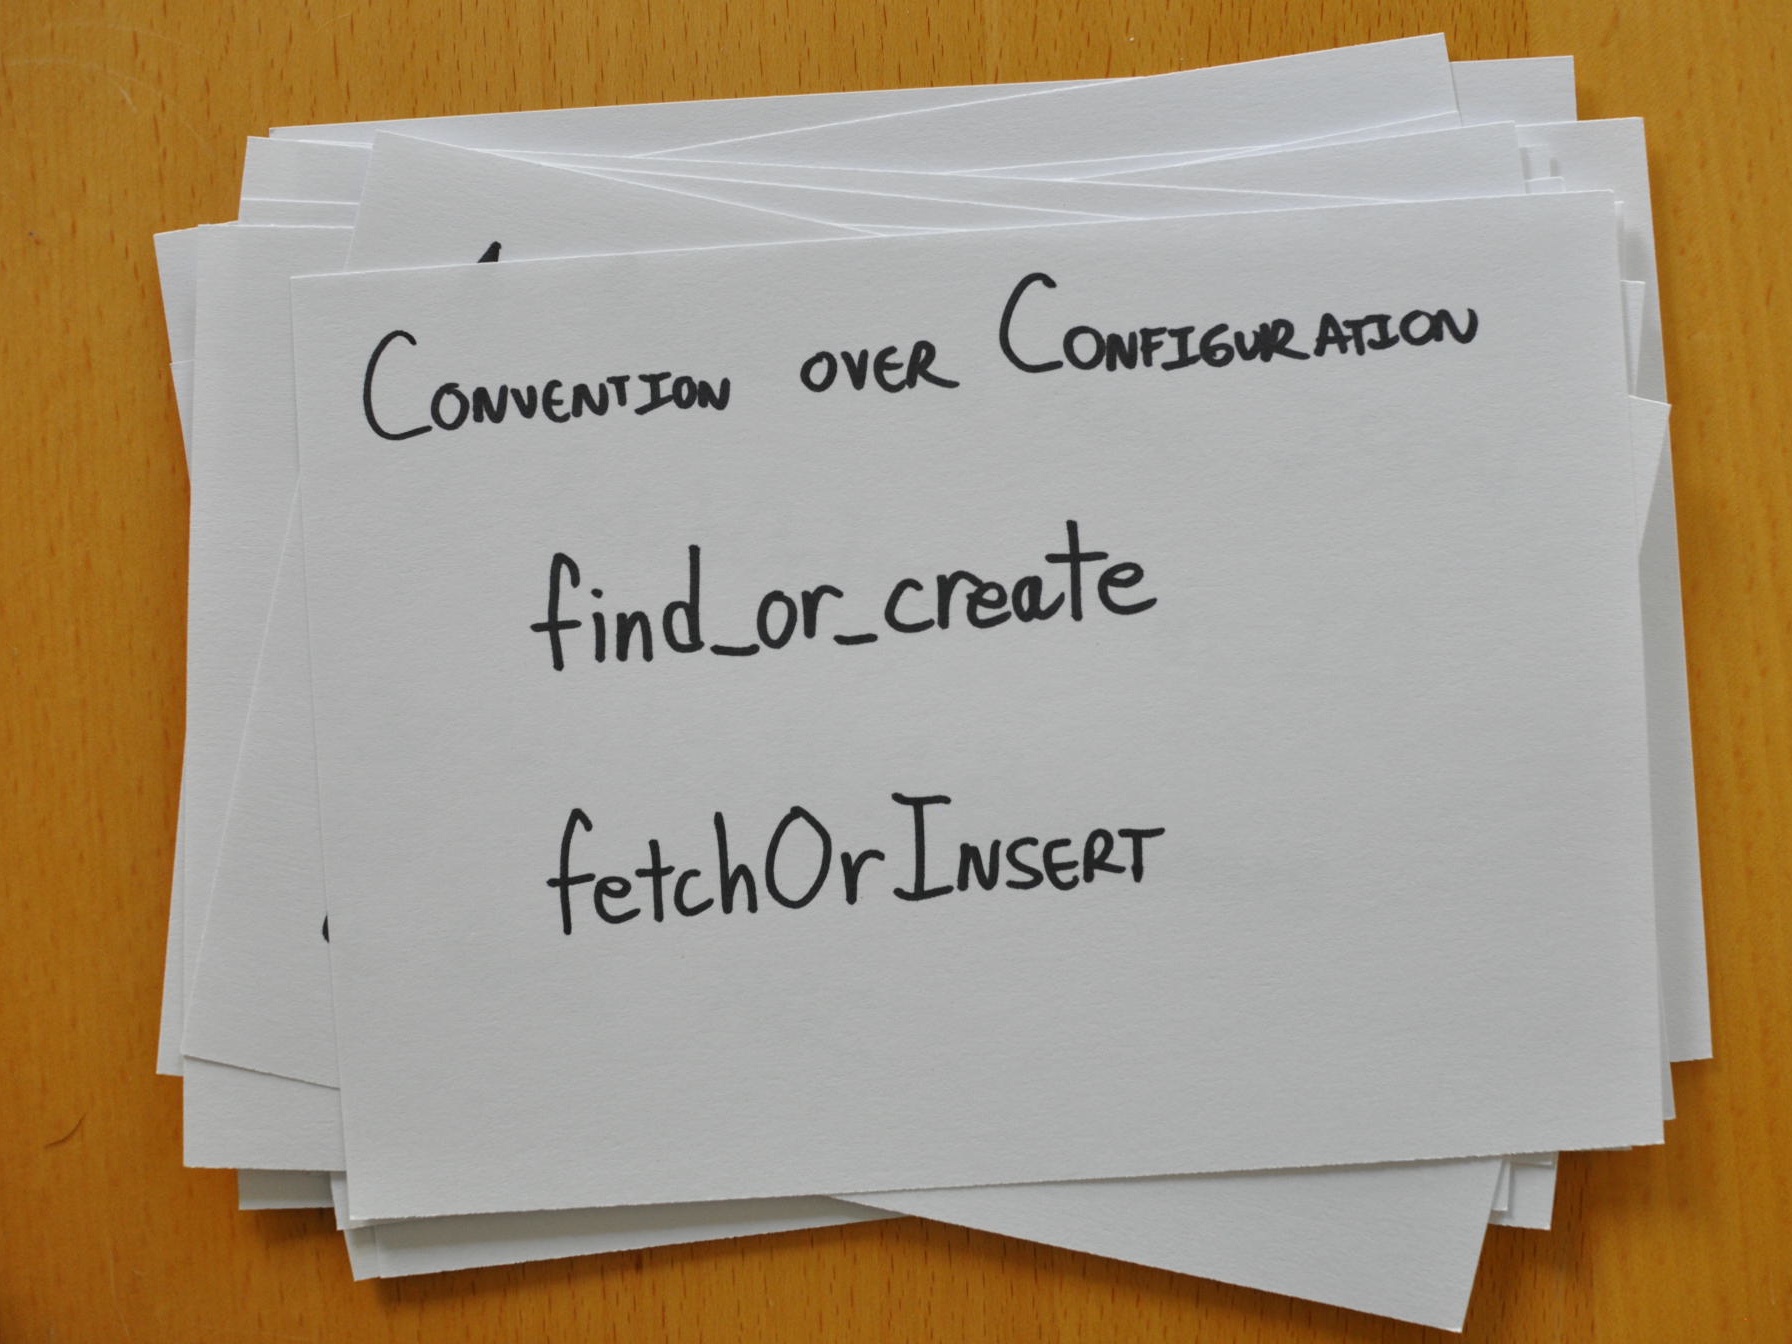 Convention over Configuration
find_or_create
fetchOrInsert